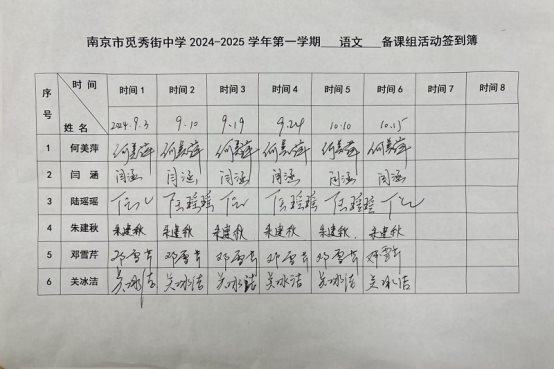 南京市觅秀街中学 2024-2025 学年第一学期 语文 备课组活动签到簿
序号 时间 姓名 时间 1 时间 2 时间 3 时间 4 时间 5 时间 6 时间 7 时间 8
2024.9.3 9.10 9.19 9.24 10.10 10.15
1 何美萍 何美萍 何美萍 何美萍 何美萍 何美萍 何美萍
2 闫涵 闫涵 闫涵 闫涵 闫涵 闫涵 闫涵
3 陆瑶瑶 陆瑶瑶 陆瑶瑶 陆瑶瑶
4 朱建秋 朱建秋 朱建秋 朱建秋 朱建秋 朱建秋 朱建秋
5 邓雪芹 邓雪芹 邓雪芹 邓雪芹 邓雪芹 邓雪芹 邓雪芹
6 关冰洁 关冰洁 关冰洁 关冰洁 关冰洁 关冰洁 关冰洁